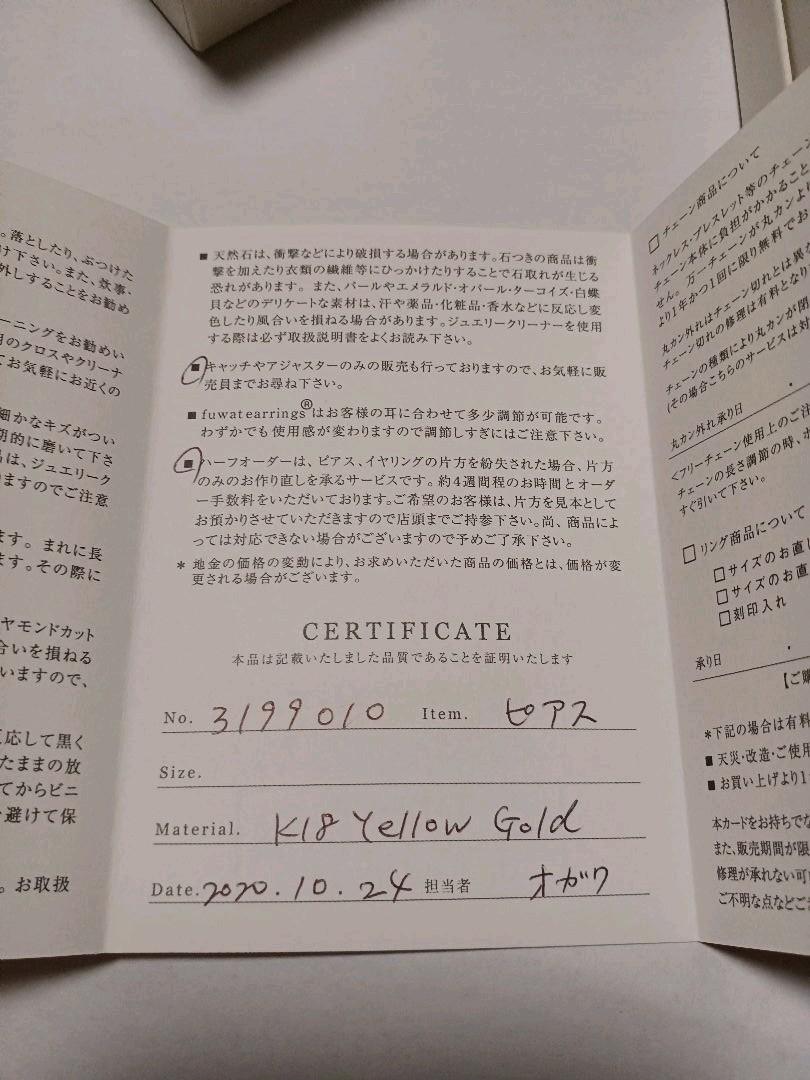 。落としたり、ぶつけた
け下さい。また、炊事・
外しすることをお勧め
ーニングをお勧めい
用のクロスやクリーナ
てお気軽にお近くの
細かなキズがつい
期的に磨いて下さ
品は、ジュエリーク
ますのでご注意
ます。まれに長
ます。その際に
ヤモンドカット
合いを損ねる
いますので、
応して黒く
たままの放
てからビニ
避けて保
。お取扱
■ 天然石は、衝撃などにより破損する場合があります。石つきの商品は衝
撃を加えたり衣類の繊維等にひっかけたりすることで石取れが生じる
恐れがあります。また、パールやエメラルド・オパール・ターコイズ・白蝶
貝などのデリケートな素材は、汗や薬品・化粧品・香水などに反応し変
色したり風合いを損ねる場合があります。ジュエリークリーナーを使用
する際は必ず取扱説明書をよくお読み下さい。
■ キャッチやアジャスターのみの販売も行っておりますので、お気軽に販
売員までお尋ね下さい。
■ fuwatearrings®はお客様の耳に合わせて多少調節が可能です。
わずかでも使用感が変わりますので調節しすぎにはご注意下さい。
■ ハーフオーダーは、ピアス、イヤリングの片方を紛失された場合、片方
のみのお作り直しを承るサービスです。約4週間程のお時間とオーダ
ー手数料をいただいております。ご希望のお客様は、片方を見本として
お預かりさせていただきますので店頭までご持参下さい。尚、商品によ
っては対応できない場合がございますので予めご了承下さい。
* 地金の価格の変動により、お求めいただいた商品の価格とは、価格が変
更される場合がございます。
CERTIFICATE
本品は記載いたしました品質であることを証明いたします
No. 3199010 Item. ピアス
Size.
Material. K18 Yellow Gold
Date. 2020.10.24 担当者 オガワ
□ チェーン商品について
ネックレス・ブレスレット等のチェーン
チェーン本体に負担がかかること
せん。万一チェーンが丸カンよ
より1年かつ1回に限り無料でお
丸カン外れはチェーン切れとは異な
チェーン切れの修理は有料となり
チェーンの種類により丸カンが閉
(その場合こちらのサービスは対
丸カン外れ承り日
<フリーチェーン使用上のご注
チェーンの長さ調節の時、ボ
すぐ引いて下さい。
□ リング商品について
□ サイズのお直し
□ サイズのお直
□ 刻印入れ
承り日
【ご購
*下記の場合は有料
■ 天災・改造・ご使用
■ お買い上げより1
本カードをお持ちでな
また、販売期間が限
修理が承れない可
ご不明な点などご